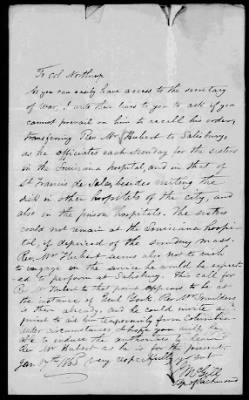 To Col Northrop
As you can easily have access to the secretary
of War, I write these lines to you to ask if you
cannot prevail on him to recall his order,
transferring Rev Mr Hubert to Salisbury
as he officiates each Sunday for the sisters
in the Louisiana hospital, and in that of
St Francis de Sales, besides visiting the
sick in other hospitals of the city, and
also in the prison hospitals. The sisters
could not remain at the Louisiana hospi-
tal, if deprived of the sunday mass.
Rev. Mr. Hubert seems also not to wish
to engage in the service he would be expected
to perform at Salisbury. The call for
Rev Mr Hubert to that point appears to be at
the instance of Genl
is there already, and he could invite a
priest to aid him temporarily from Columbia
under circumstances. I hope you will be
able to induce the authorities to leave
Rev Mr Hubert as he is for the present.
Jan 1865 Very respectfully yr svt
McGill
Bp. of Richmond